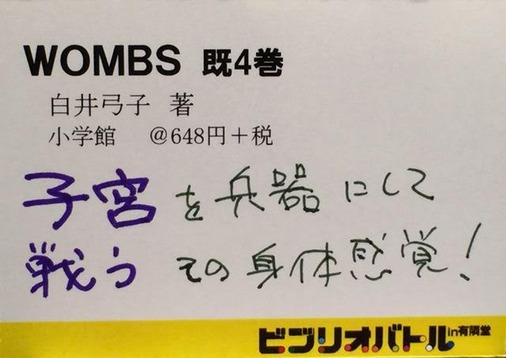 WOMBS 既4巻
白井弓子 著
小学館 @648円+税
子宮を兵器にして
戦うその身体感覚!
ビブリオバトルin有隣堂